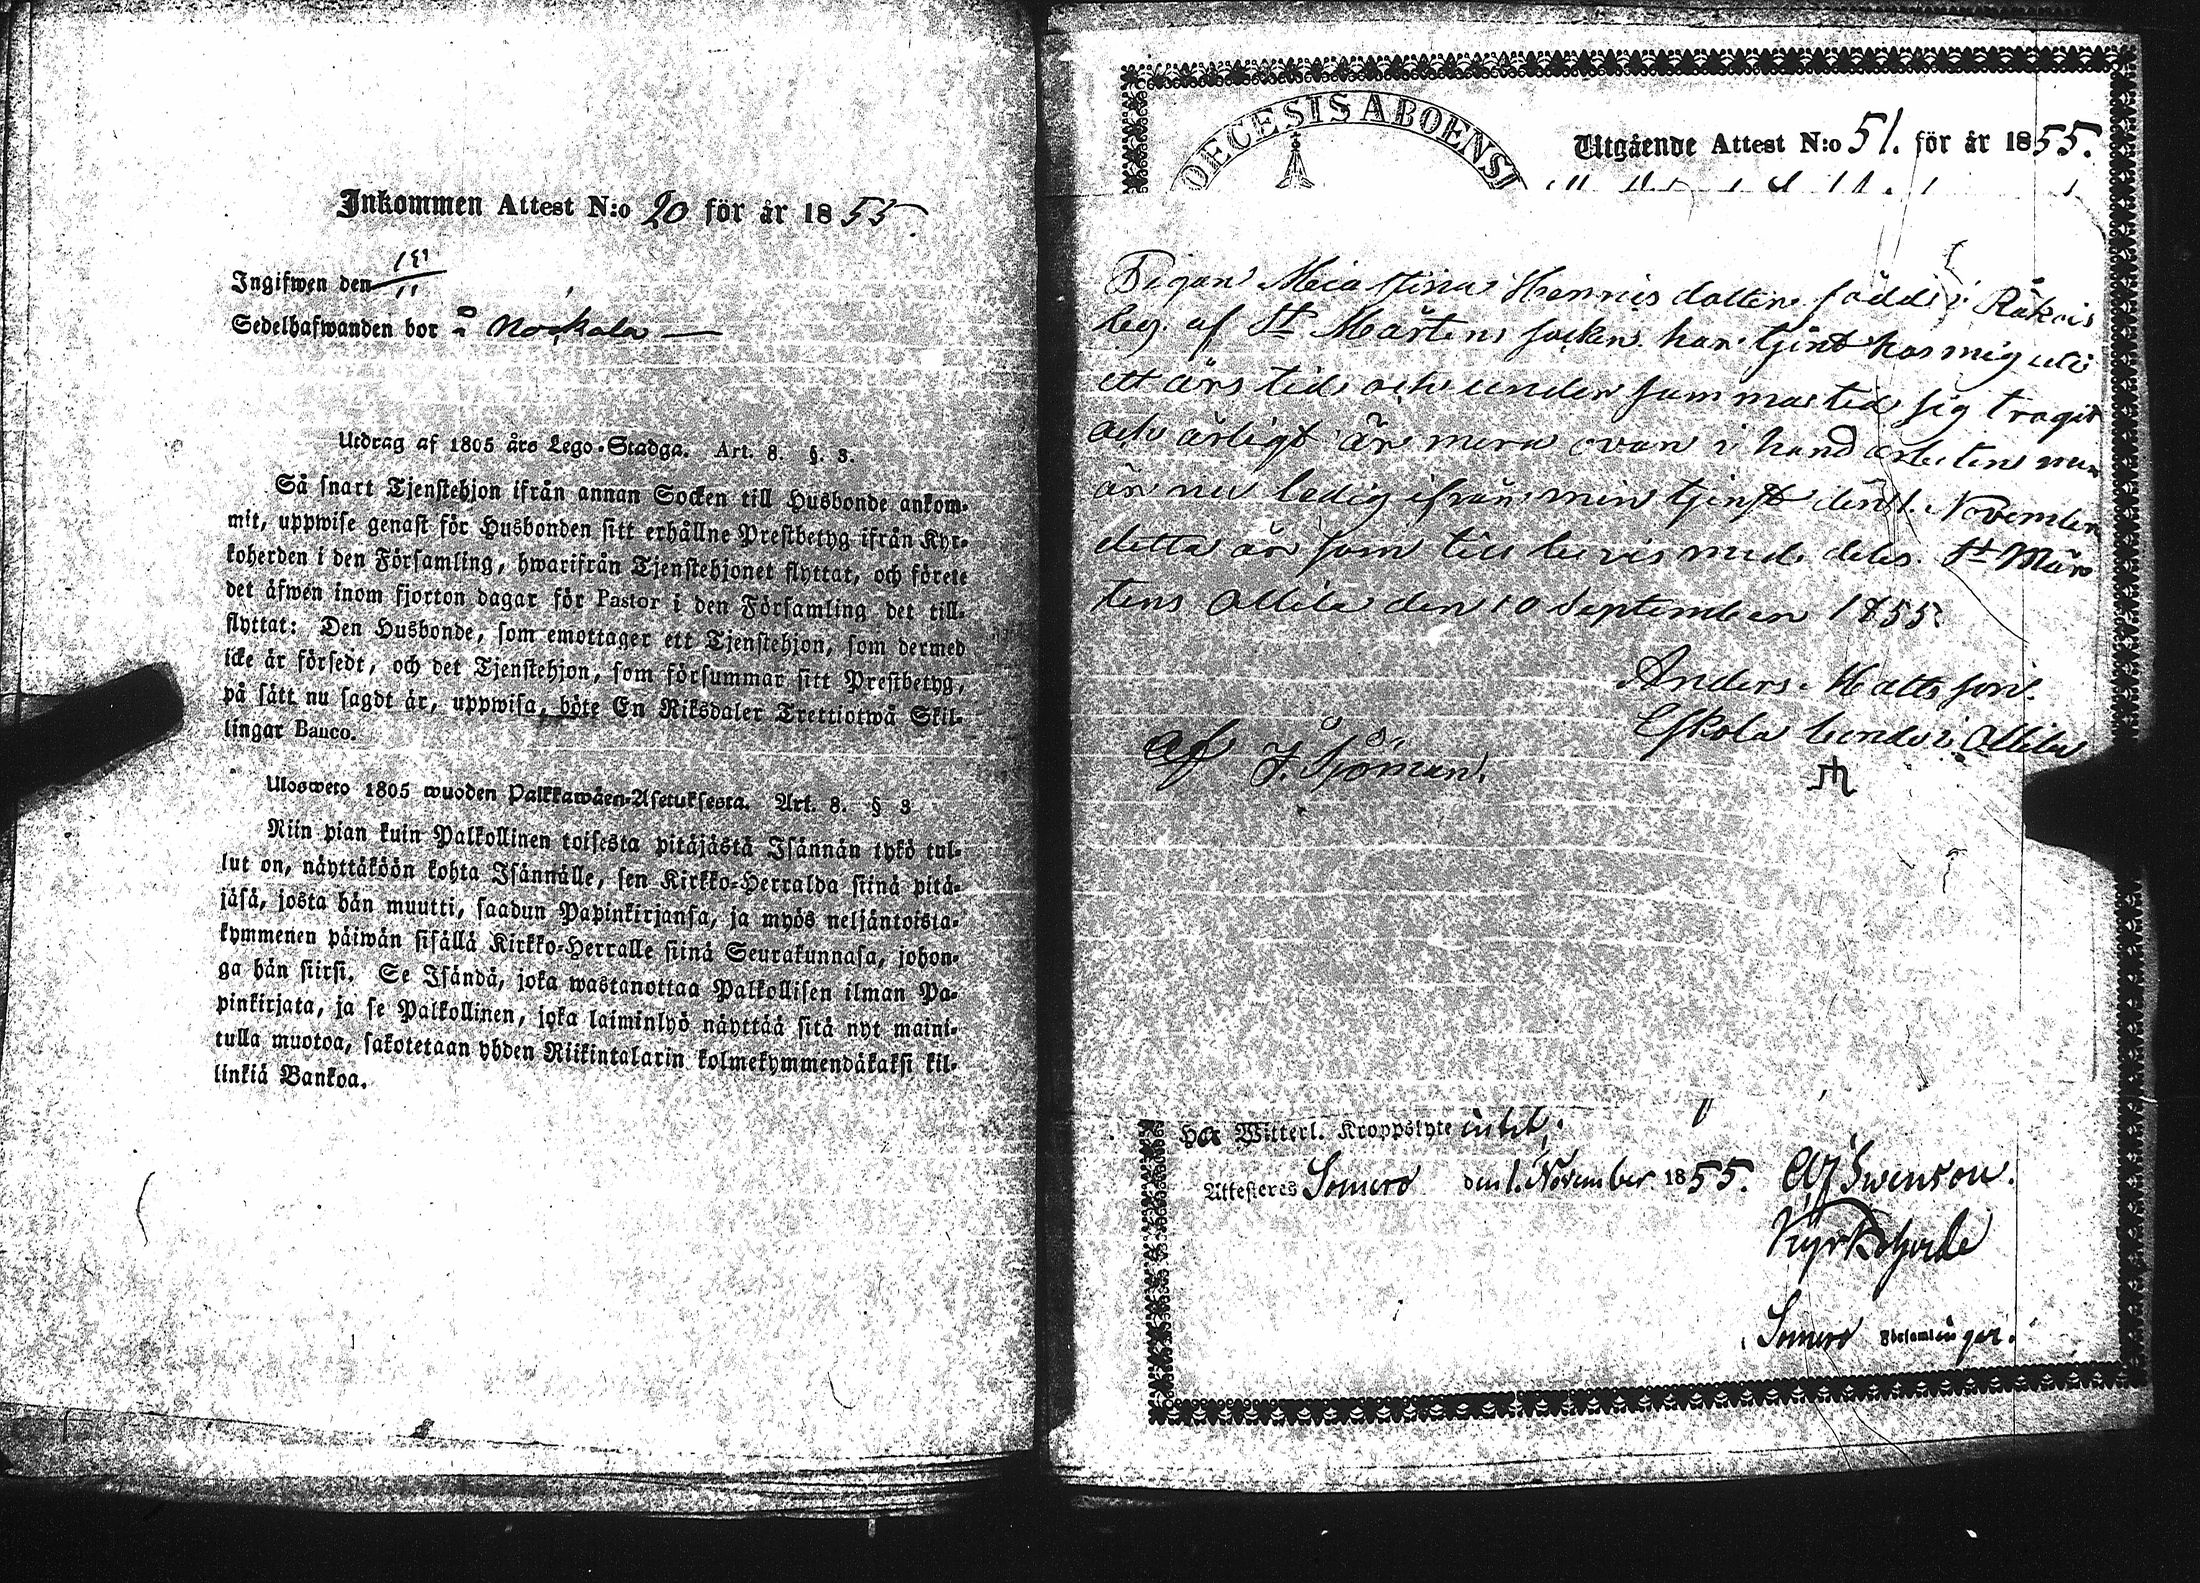 Inkommen Attest N:o 20 för år 1855.
Ingifwen den 
Sedelhafwanden bor å Nokala
Utdrag af 1805 års Lego-Stadga. Art. 8. §. 3.
Så snart Tjenstehjon ifrån annan Socken till Husbonde ankom-
mit, uppwise genast för Husbonden sitt erhållne Prestbetyg ifrån Kyr-
koherden i den Församling, hwarifrån Tjenstehjonet flyttat, och förete
det äfwen inom fjorton dagar för Pastor i den Församling det till-
flyttat: Den Husbonde, som emottager ett Tjenstehjon, som dermed
icke är försedt, och det Tjenstehjon, som försummar sitt Prestbetyg,
på sätt nu sagdt är, uppwisa, böte En Riksdaler Trettiotwå Skil-
lingar Banco.
Ulosweto 1805 wuoden Palkkawäen-Asetuksesta. Art. 8. § 3
Niin pian kuin Palkollinen toisesta pitäjästä Isännän tykö tul-
lut on, näyttäköön kohta Isännälle, sen Kirkko-Herralda siinä pitä-
jäsä, josta hän muutti, saadun Papinkirjansa, ja myös neljäntoista-
kymmenen päiwän sisällä Kirkko-Herralle siinä Seurakunnasa, johon-
ga hän siirsi. Se Isändä, joka wastanottaa Palkollisen ilman Pa-
pinkirjata, ja se Palkollinen, joka laiminlyö näyttää sitä nyt maini-
tulla muotoa, sakotetaan yhden Riikintalarin kolmekymmendäkaksi kil-
linkiä Bankoa.
OECESIS ABOENSI
Utgående Attest N:o 51. för år 1855.
Pigan Meia Stina Henricsdotter född i Råkois
bey. af St Mårtens socken har tjent hos mig uti
ett års tid och under samma tid sig tragit
och ärligt är mera van i hand arbeten nun
är nu ledig ifrån min tjenst den 1. November
detta år som till bevis med delas. St Mår
tens Ollila den 10 September 1855.
Anders Mattsson.
Eskola bonde i Ollila
af J. Sjöman.
Har Witterl. Kroppslyte intet.
Attesteres Somero den 1. November 1855. Swenson.
Kyrkoherde
Somero Församlingar.